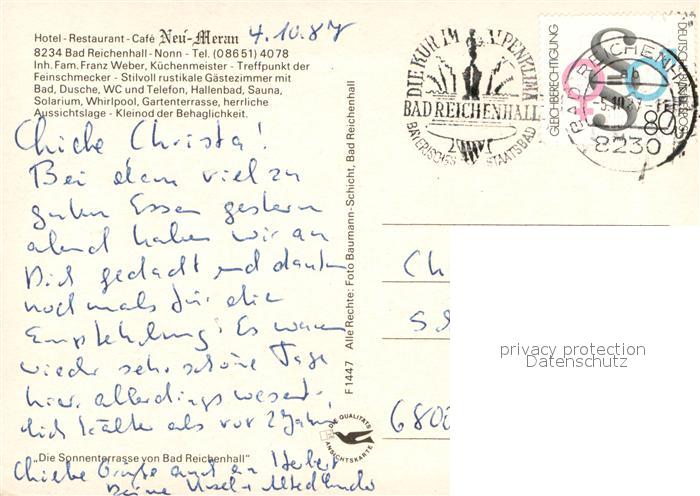 Hotel - Restaurant - Café Neu-Meran 4.10.87
8234 Bad Reichenhall - Nonn - Tel. (08651) 4078
Inh. Fam. Franz Weber, Küchenmeister - Treffpunkt der
Feinschmecker - Stilvoll rustikale Gästezimmer mit
Bad, Dusche, WC und Telefon, Hallenbad, Sauna,
Solarium, Whirlpool, Gartenterrasse, herrliche
Aussichtslage - Kleinod der Behaglichkeit.
Liebe Christa!
Bei dem viel zu
guten Essen gestern
abend haben wir an
Dich gedacht und danken
nochmals für die
Empfehlung! Es waren
wieder sehr schöne Tage
hier, allerdings wesent-
lich kälter als vor 2 Jahren
„Die Sonnenterrasse von Bad Reichenhall"
Liebe Grüße auch an Herbert
Deine Ursel +
F 1447 Alle Rechte: Foto Baumann-Schicht, Bad Reichenhall
DIE QUALITÄTS
ANSICHTSKARTE
DIE KUR IM ALPENKLIMA
BAD REICHENHALL
BAYERISCHES STAATSBAD
GLEICHBERECHTIGUNG
DEUTSCHE BUNDESPOST
80
BAD REICHENHALL
8230
Ch
680
privacy protection
Datenschutz